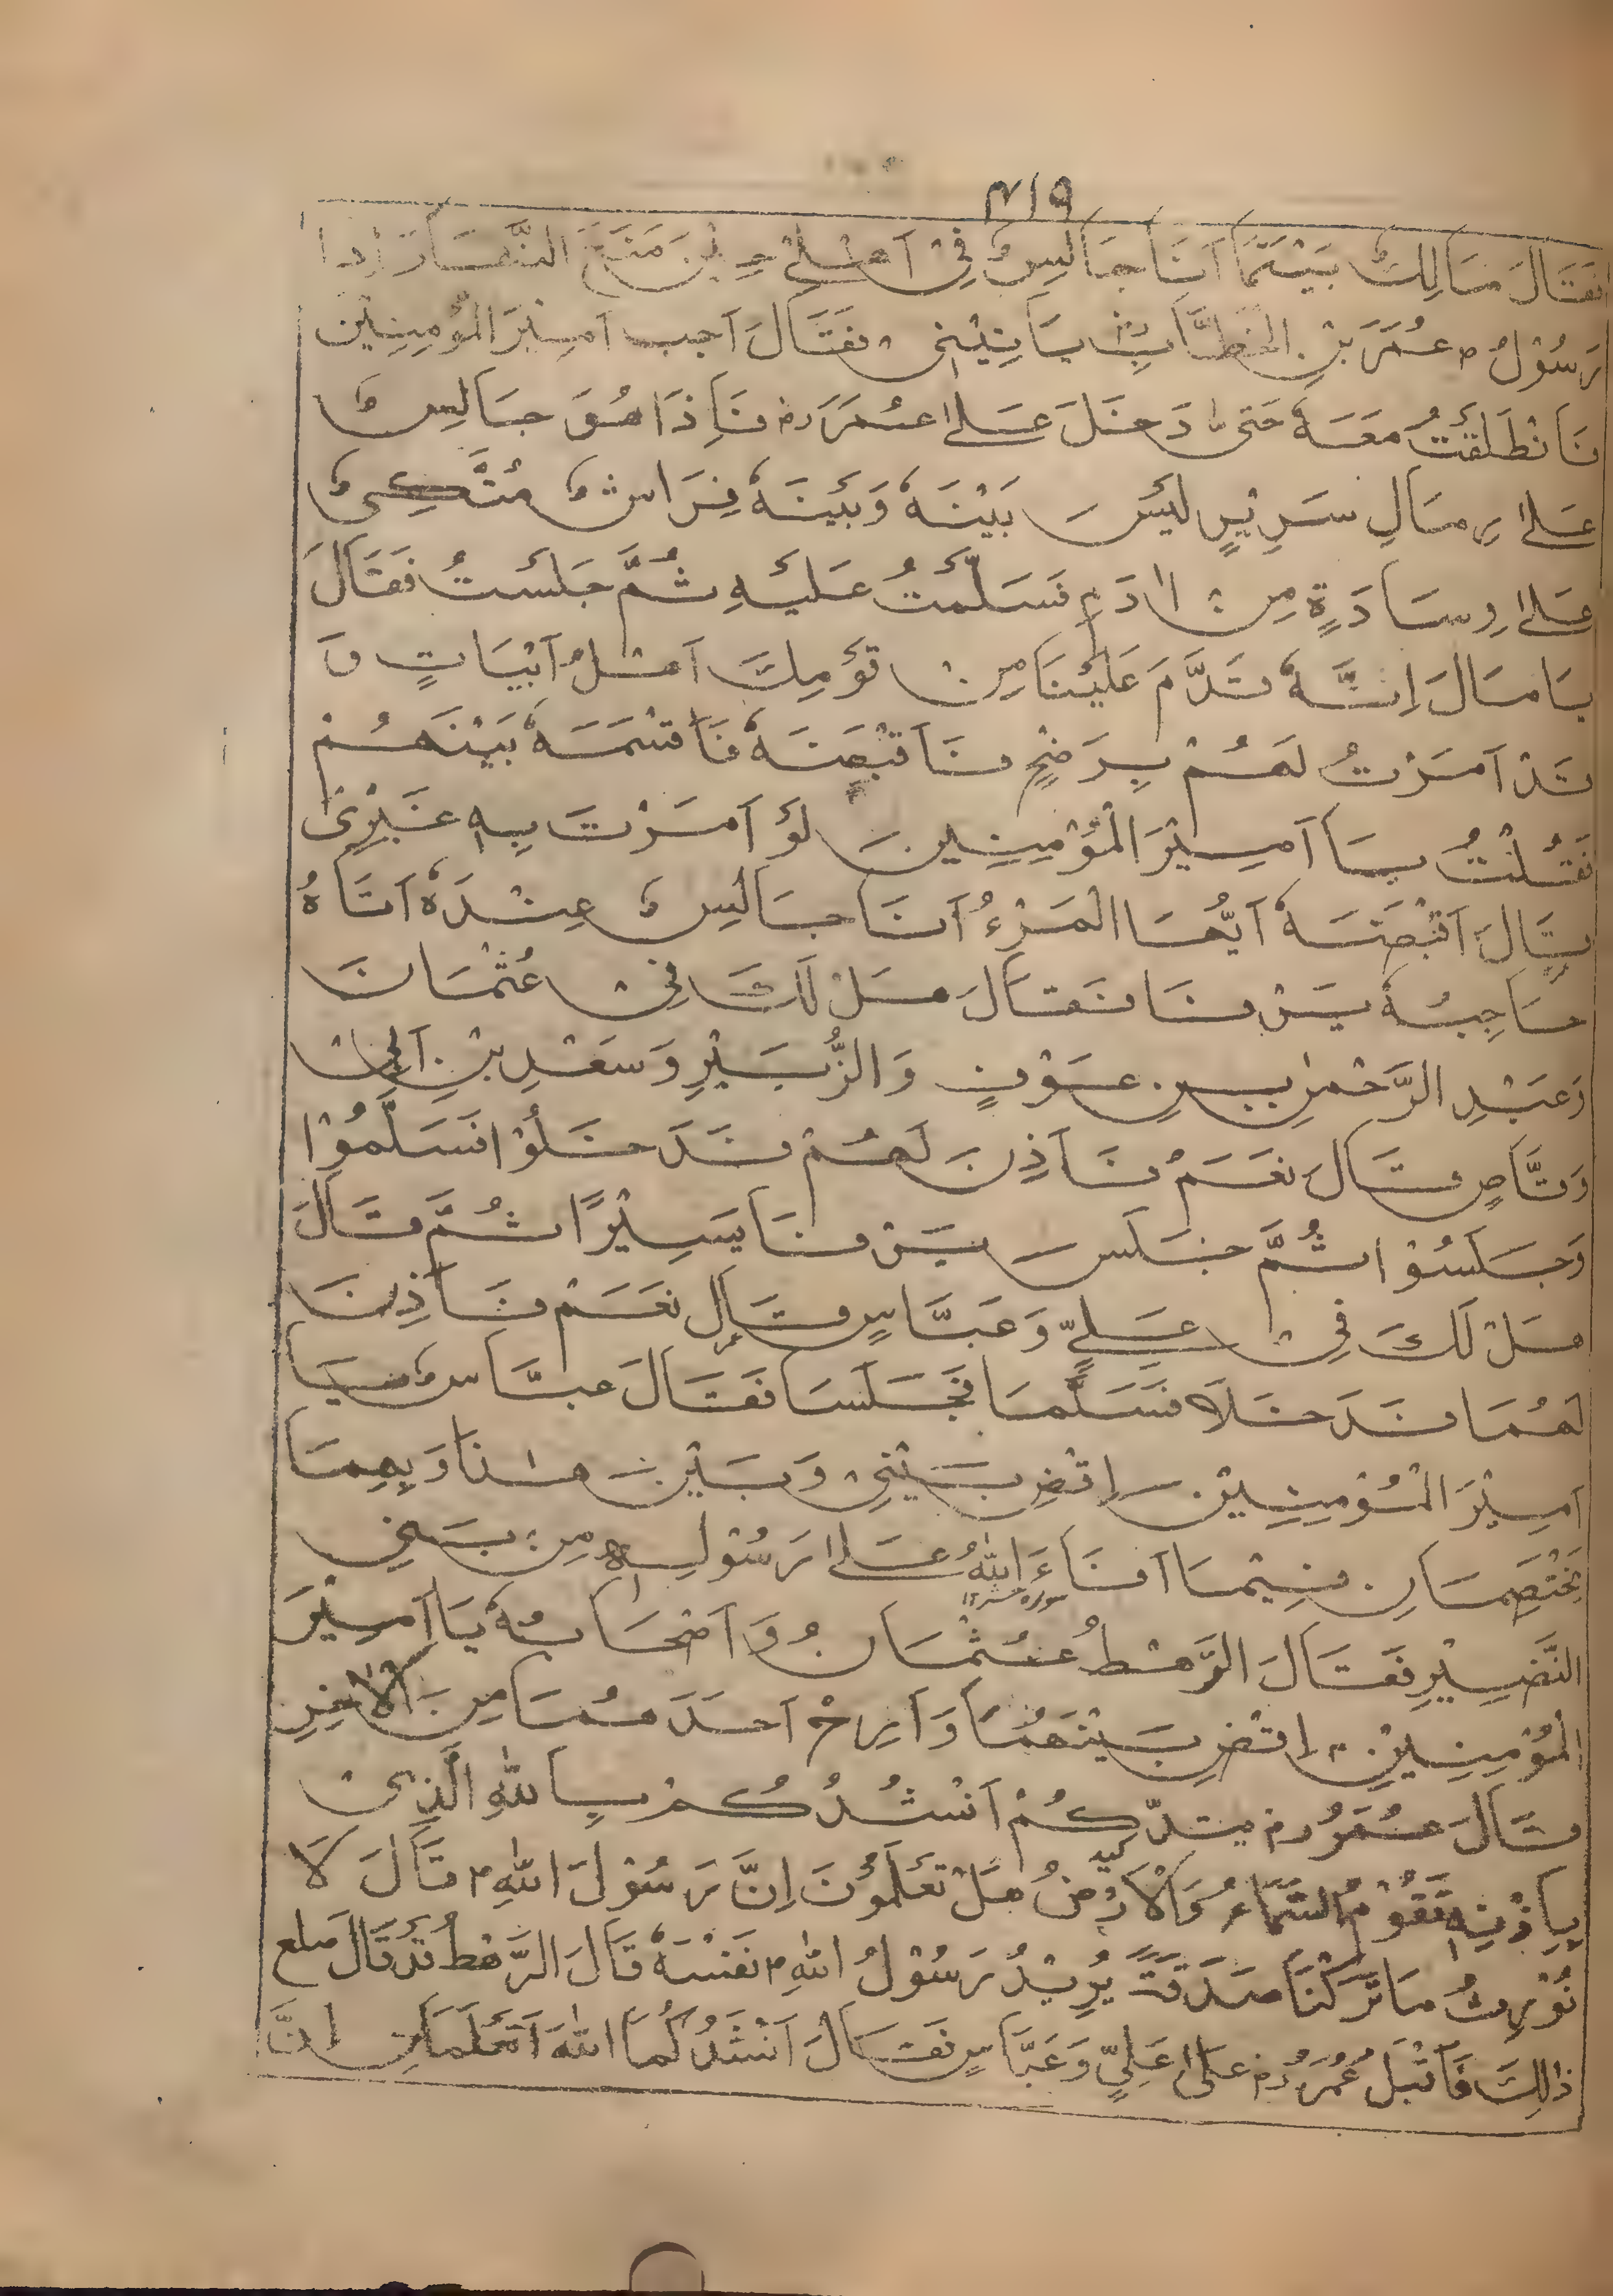 ٣١٩
فَقَالَ مَالِكٌ بَيْنَمَا اَنَا جَالِسٌ فِىْ اَهْلِىْ حِيْنَ مَتَعَ النَّهَارُ اِذَا
رَسُوْلُ عُمَرَ بْنِ الْخَطَّابِ يَاْتِيْنِىْ فَقَالَ اَجِبْ اَمِيْرَ الْمُؤْمِنِيْنَ
فَانْطَلَقْتُ مَعَهٗ حَتّٰى دَخَلَ عَلٰى عُمَرَ رض فَاِذَا هُوَ جَالِسٌ
عَلٰى رِمَالِ سَرِيْرٍ لَيْسَ بَيْنَهٗ وَبَيْنَهٗ فِرَاشٌ مُتَّكِئٌ
عَلٰى وِسَادَةٍ مِنْ اٰدَمٍ فَسَلَّمْتُ عَلَيْهِ ثُمَّ جَلَسْتُ فَقَالَ
يَا مَالِ اِنَّهٗ قَدَّمَ عَلَيْنَا مِنْ قَوْمِكَ اَهْلُ اَبْيَاتٍ وَ
قَدْ اَمَرْتُ لَهُمْ بِرَضْخٍ فَاقْبِضْهٗ فَاقْسِمْهٗ بَيْنَهُمْ
فَقُلْتُ يَا اَمِيْرَ الْمُؤْمِنِيْنَ لَوْ اَمَرْتَ بِهٖ غَيْرِىْ
قَالَ اَقْبِضْهٗ اَيُّهَا الْمَرْءُ اَنَا جَالِسٌ عِنْدَهٗ اَتَاهُ
حَاجِبُهٗ يَرْفَا فَقَالَ هَلْ لَكَ فِىْ عُثْمَانَ
وَعَبْدِ الرَّحْمٰنِ بْنِ عَوْفٍ وَالزُّبَيْرِ وَسَعْدِ بْنِ اَبِىْ
وَقَّاصٍ قَالَ نَعَمْ فَاَذِنَ لَهُمْ فَدَخَلُوْا فَسَلَّمُوْا
وَجَلَسُوْا ثُمَّ جَلَسَ يَرْفَا يَسِيْرًا ثُمَّ قَالَ
هَلْ لَكَ فِىْ عَلِيٍّ وَعَبَّاسٍ قَالَ نَعَمْ فَاَذِنَ
لَهُمَا فَدَخَلَا فَسَلَّمَا فَجَلَسَا فَقَالَ عَبَّاسٌ يَا
اَمِيْرَ الْمُؤْمِنِيْنَ اِقْضِ بَيْنِىْ وَبَيْنَ هٰذَا وَبِهِمَا
يَخْتَصِمَانِ فِيْمَا اَفَاءَ اللّٰهُ عَلٰى رَسُوْلِهٖ مِنْ بَنِى
النَّضِيْرِ فَقَالَ الرَّهْطُ عُثْمَانُ وَاَصْحَابُهٗ يَا اَمِيْرَ
الْمُؤْمِنِيْنَ اِقْضِ بَيْنَهُمَا وَاَرِحْ اَحَدَهُمَا مِنَ الْاٰخَرِ
قَالَ عُمَرُ رض تَيْدَكُمْ اَنْشُدُكُمْ بِاللّٰهِ الَّذِىْ
بِاِذْنِهٖ تَقُوْمُ السَّمَاءُ وَالْاَرْضُ هَلْ تَعْلَمُوْنَ اِنَّ رَسُوْلَ اللّٰهِ قَالَ لَا
نُوْرِثُ مَا تَرَكْنَا صَدَقَةً يُرِيْدُ رَسُوْلُ اللّٰهِ نَفْسَهٗ قَالَ الرَّهْطُ قَدْ قَالَ صلعم
ذٰلِكَ فَاَقْبَلَ عُمَرُ رض عَلٰى عَلِيٍّ وَعَبَّاسٍ فَقَالَ اَنْشُدُكُمَا اللّٰهَ اَتَعْلَمَانِ اِنَّ